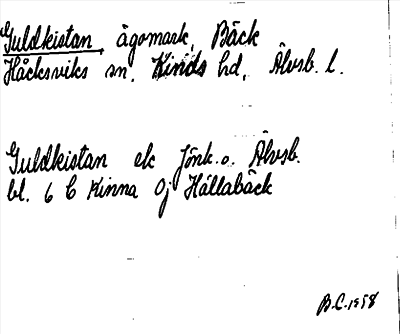 Guldkistan, ägomark, Bäck
Håcksviks sn. Kinds hd, Älvsb. l.
Guldkistan ek Jönk. o. Älvsb.
bl. 6 C Kinna 0j Hällabäck
B.C. 1958